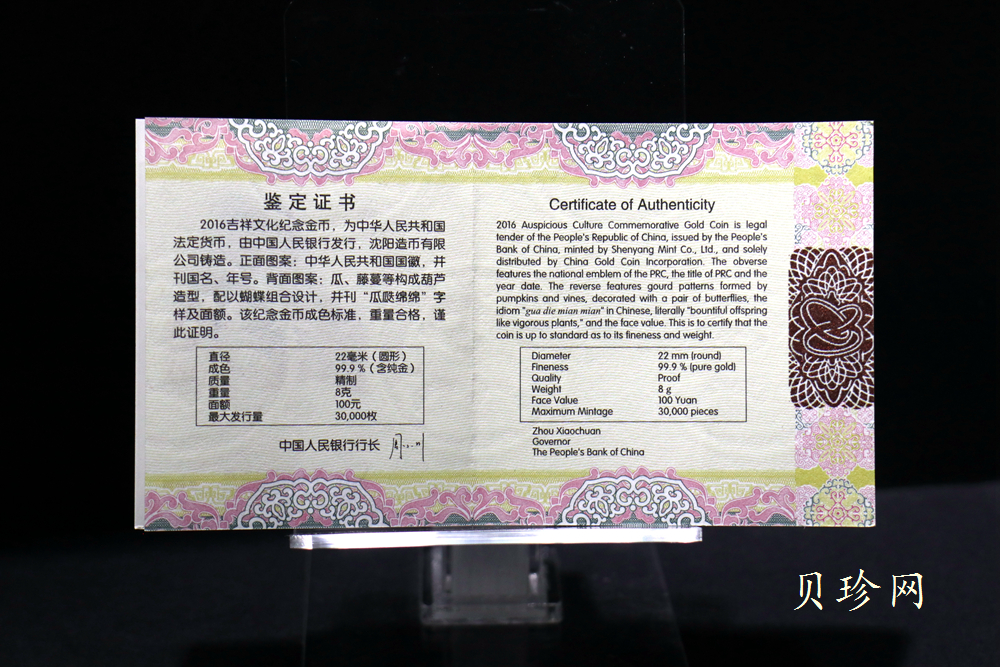 鉴定证书
2016吉祥文化纪念金币，为中华人民共和国
法定货币，由中国人民银行发行，沈阳造币有限
公司铸造。正面图案：中华人民共和国国徽，并
刊国名、年号。背面图案：瓜、藤蔓等构成葫芦
造型，配以蝴蝶组合设计，并刊“瓜瓞绵绵”字
样及面额。该纪念金币成色标准，重量合格，谨
此证明。
直径 22毫米（圆形）
成色 99.9％（含纯金）
质量 精制
重量 8克
面额 100元
最大发行量 30,000枚
中国人民银行行长
Certificate of Authenticity
2016 Auspicious Culture Commemorative Gold Coin is legal
tender of the People's Republic of China, issued by the People's
Bank of China, minted by Shenyang Mint Co., Ltd., and solely
distributed by China Gold Coin Incorporation. The obverse
features the national emblem of the PRC, the title of PRC and the
year date. The reverse features gourd patterns formed by
pumpkins and vines, decorated with a pair of butterflies, the
idiom "gua die mian mian" in Chinese, literally "bountiful offspring
like vigorous plants," and the face value. This is to certify that the
coin is up to standard as to its fineness and weight.
Diameter 22 mm (round)
Fineness 99.9 % (pure gold)
Quality Proof
Weight 8 g
Face Value 100 Yuan
Maximum Mintage 30,000 pieces
Zhou Xiaochuan
Governor
The People's Bank of China
贝珍网